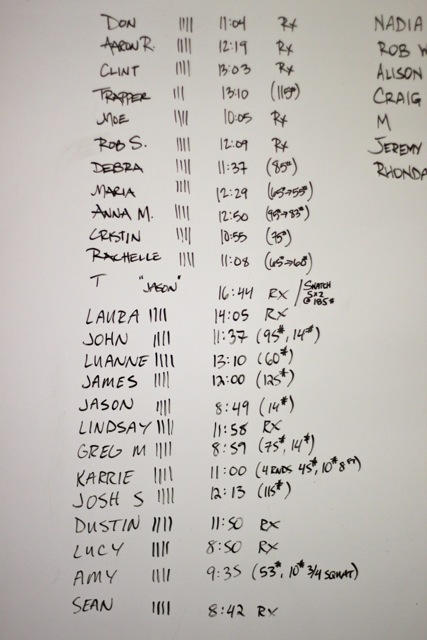 DON |||| 11:04 RX
AARON R. |||| 12:19 RX
CLINT |||| 13:03 RX
TRAPPER ||| 13:10 (115#)
MOE |||| 10:05 RX
ROB S. |||| 12:09 RX
DEBRA |||| 11:37 (85#)
MARIA |||| 12:29 (65→55#)
ANNA M. |||| 12:50 (95→83#)
CRISTIN |||| 10:55 (75#)
RACHELLE |||| 11:08 (65→60#)
T "JASON" 16:44 RX / SNATCH 5X2 @ 185#
LAURA |||| 14:05 RX
JOHN |||| 11:37 (95#, 14#)
LUANNE |||| 13:10 (60#)
JAMES |||| 12:00 (125#)
JASON |||| 8:49 (14#)
LINDSAY |||| 11:58 RX
GREG M |||| 8:59 (75#, 14#)
KARRIE |||| 11:00 (4 RNDS 45#, 10# 8FT)
JOSH S |||| 12:13 (115#)
DUSTIN |||| 11:50 RX
LUCY |||| 8:50 RX
AMY |||| 9:35 (53#, 10# 3/4 SQUAT)
SEAN |||| 8:42 RX
NADIA
ROB W
ALISON
CRAIG
M
JEREMY
RHONDA